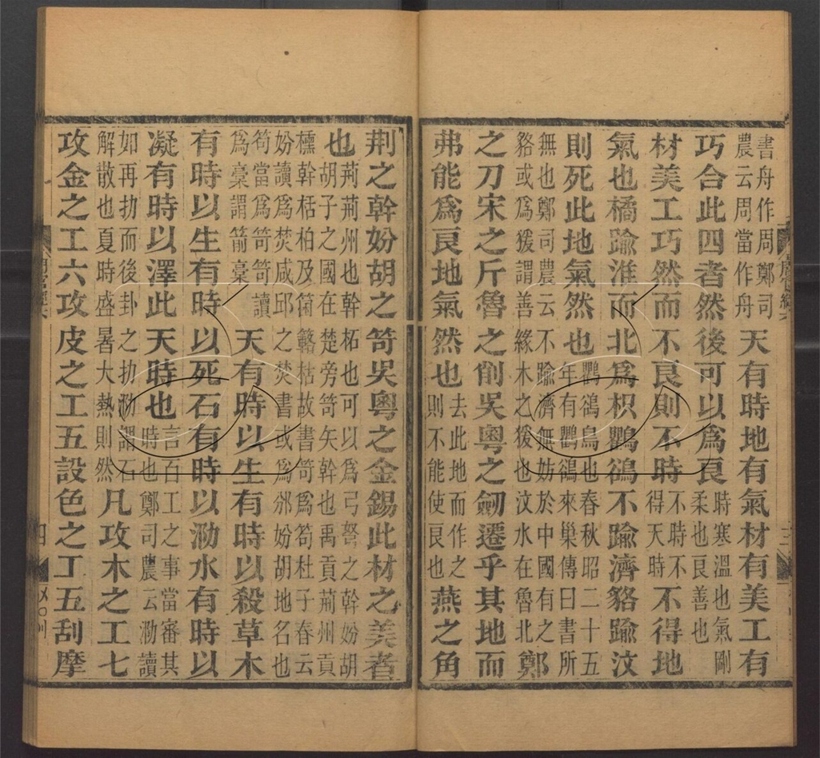 書舟作周鄭司
農云周當作舟
天有時地有氣材有美工有
巧合此四者然後可以爲良
時寒溫也氣剛
柔也良善也
材美工巧然而不良則不時
不時不
得天時
不得地
氣也橘踰淮而北爲枳鸜鵒不踰濟貉踰汶
則死此地氣然也
鸜鵒鳥也春秋昭二十五
年有鸜鵒來巢傳曰書所
無也鄭司農云不踰濟無妨於中國有之
貉或爲猨謂善緣木之猨也汶水在魯北
鄭
之刀宋之斤魯之削吳粤之劒遷乎其地而
弗能爲良地氣然也
去此地而作之
則不能使良也
燕之角
荆之幹妢胡之笴吳粤之金錫此材之美者
也
荆荆州也幹柘也可以爲弓弩之幹妢胡
胡子之國在楚旁笴矢幹也禹貢荊州貢
櫄幹栝柏及箘簵枯故書笴爲笱杜子春云
妢讀爲焚咸邱之焚書或爲邠妢胡地名也
笱當爲笴笴讀
爲槀謂箭槀
天有時以生有時以殺草木
有時以生有時以死石有時以泐水有時以
凝有時以澤此天時也
言百工之事當審其
時也鄭司農云泐讀
如再扐而後卦之扐泐謂石
解散也夏時盛暑大熱則然
凡攻木之工七
攻金之工六攻皮之工五設色之工五刮摩
三
四